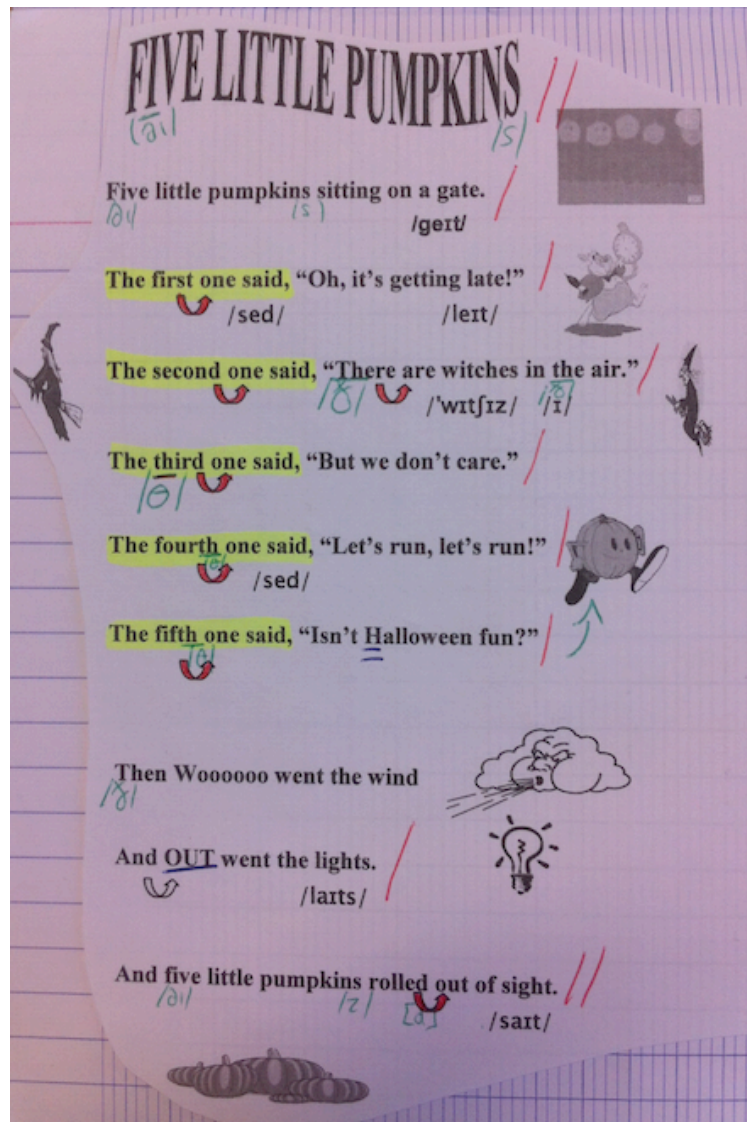 FIVE LITTLE PUMPKINS //
/aɪ/ /s/
Five little pumpkins sitting on a gate. /
/aɪ/ /s/ /geɪt/
The first one said, “Oh, it’s getting late!” /
/sed/ /leɪt/
The second one said, “There are witches in the air.” /
/ð/ /ˈwɪtʃɪz/ /ɪ/
The third one said, “But we don’t care.” /
/θ/
The fourth one said, “Let’s run, let’s run!” /
/θ/
/sed/
The fifth one said, “Isn’t Halloween fun?” /
/θ/
Then Woooooo went the wind
/ð/
And OUT went the lights. /
/laɪts/
And five little pumpkins rolled out of sight. //
/aɪ/ /z/ [d] /saɪt/